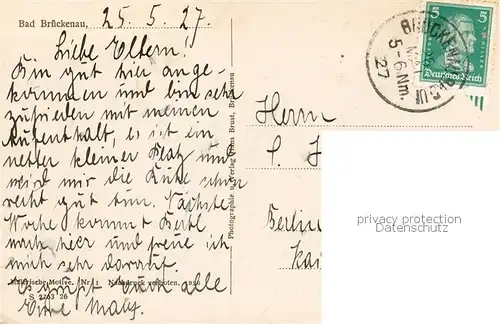 Bad Brückenau, 25. 5. 27.
Liebe Eltern!
Bin gut hier ange-
kommen und bin sehr
zufrieden mit meinen
Aufenthalt, es ist ein
netter kleiner Platz und
wird mir die Ruhe schon
recht gut tun. Nächste
Woche kommt
nach hier und freue ich
mich sehr darauf.
Es grüßt Euch alle
Eure
Malerische Motive. Nr. 1 Nachdruck verboten. 1926
S 2763 26
Photographie u. Verlag Hans Brust, Brückenau
BRÜCKENAU
MAI
5-6 Nm.
27
5 5
Deutsches Reich
Herrn
Berlin
privacy protection
Datenschutz